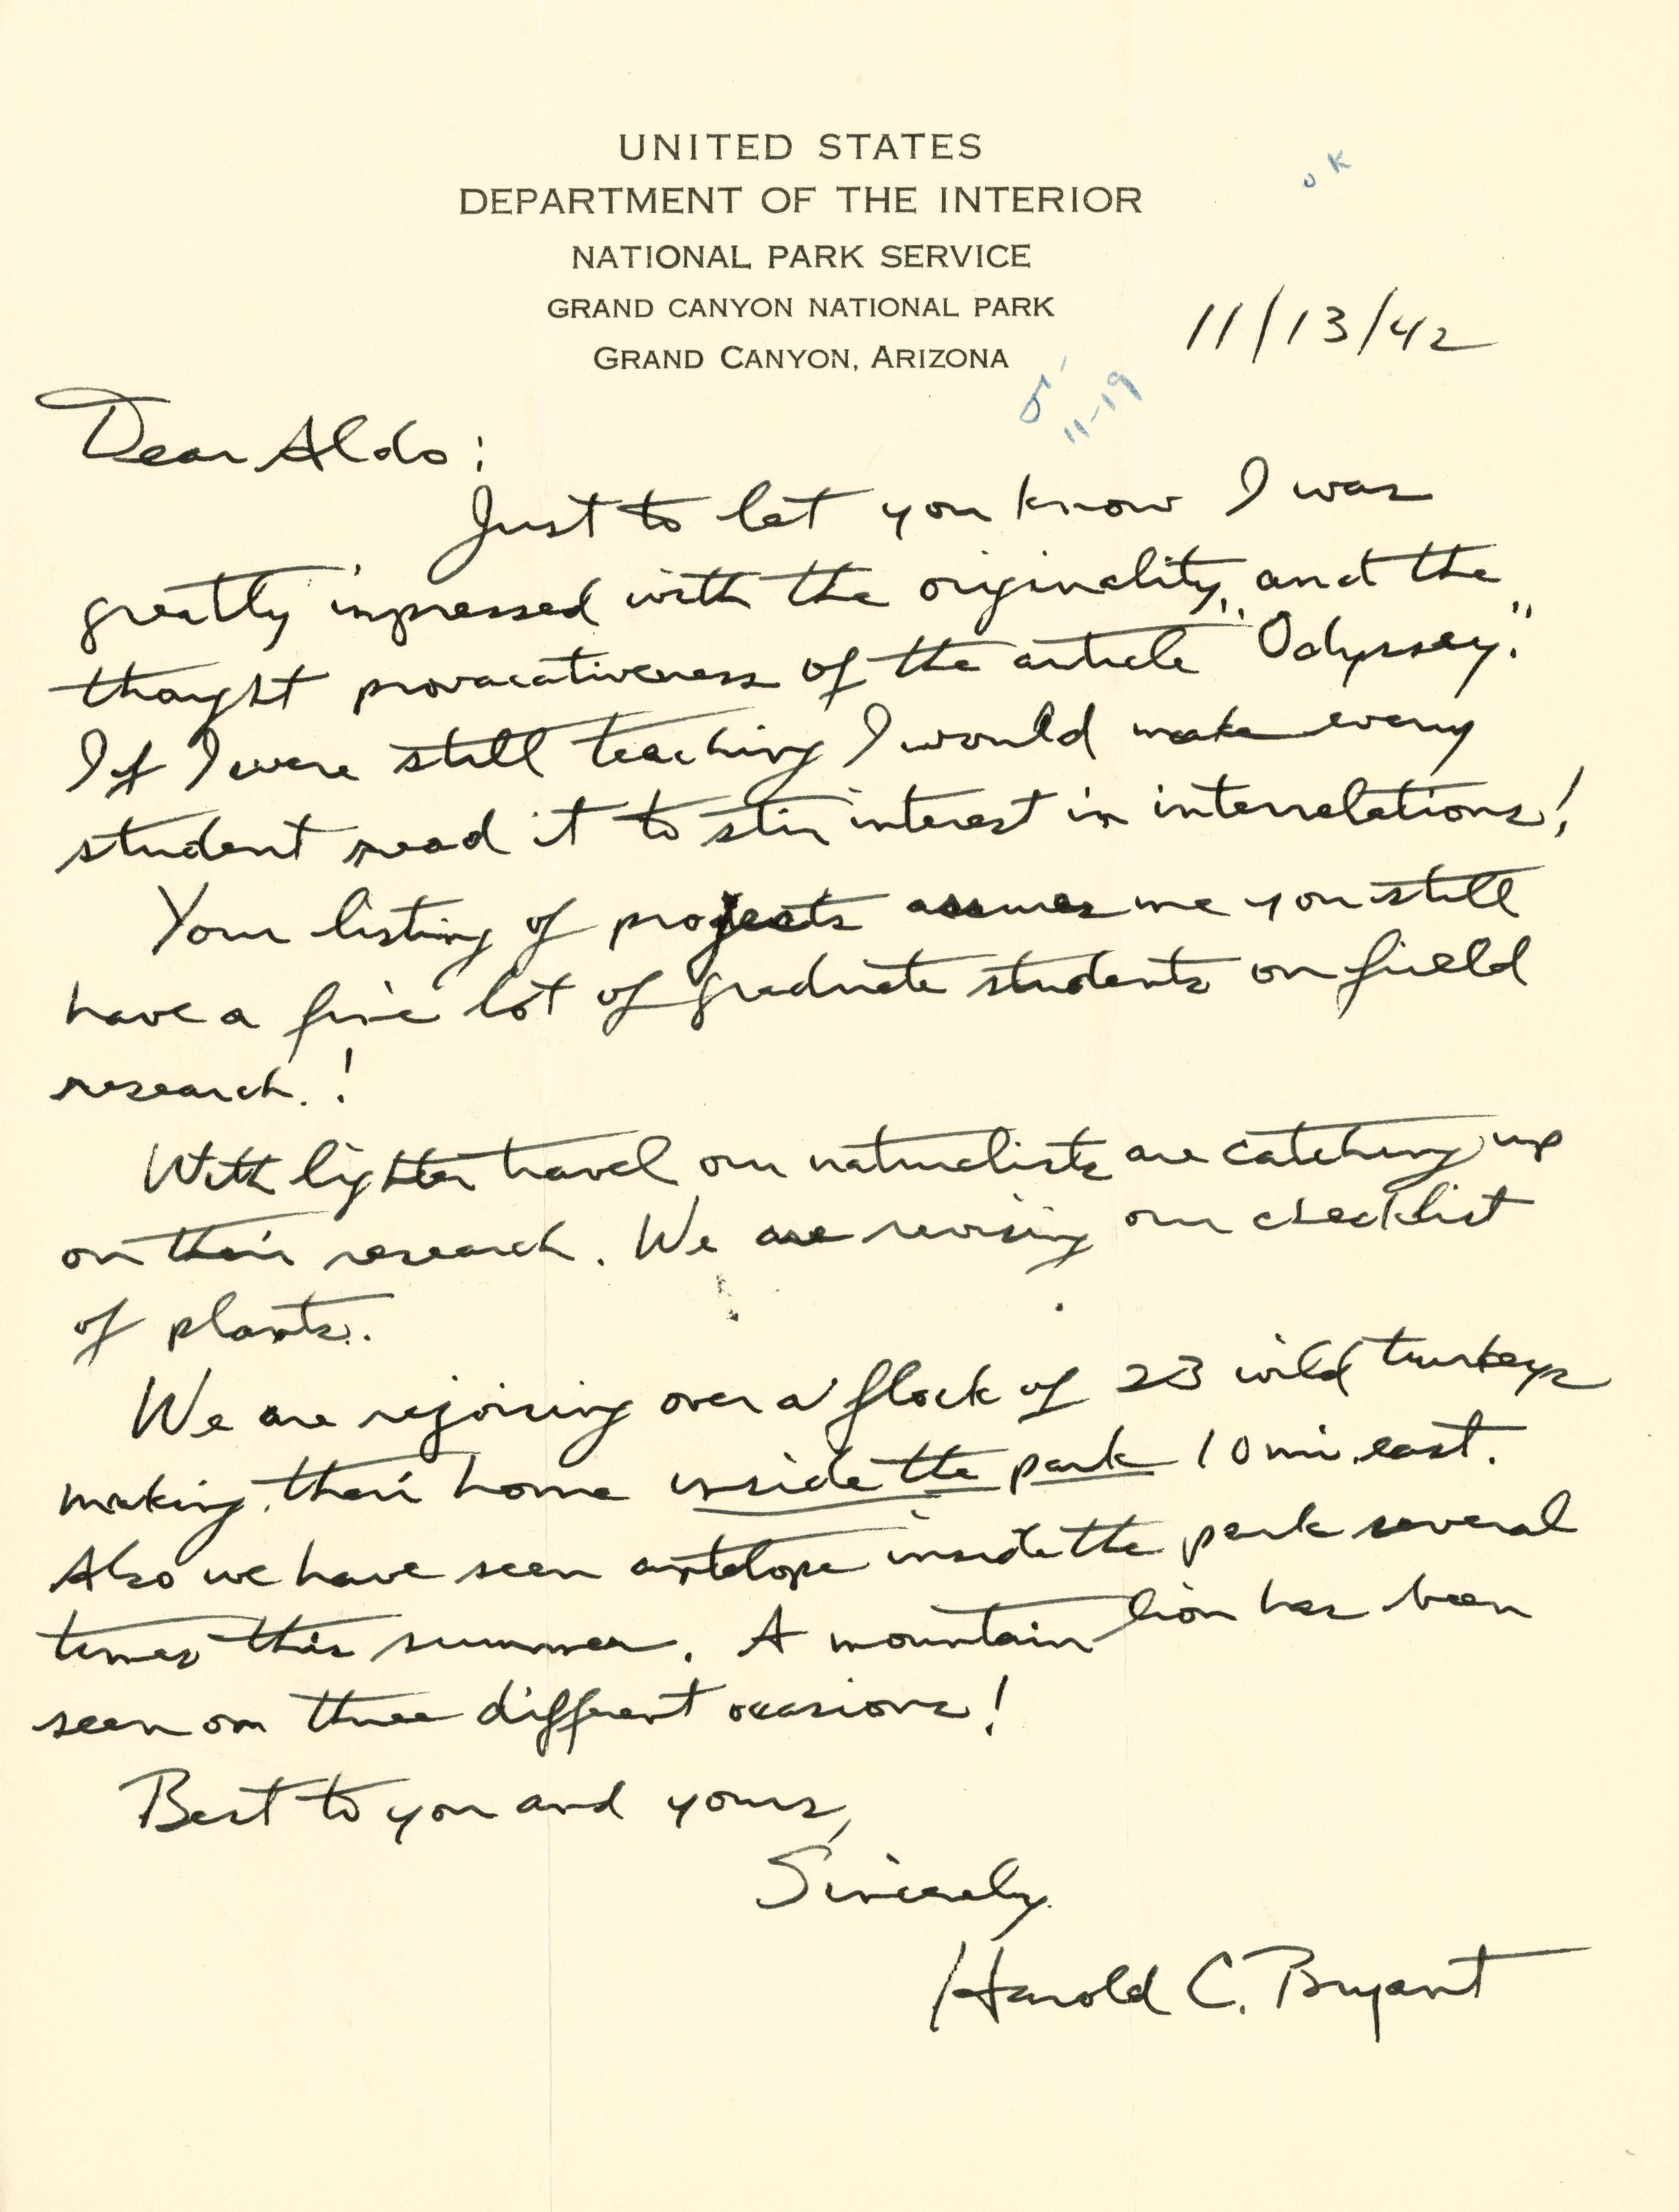 UNITED STATES
DEPARTMENT OF THE INTERIOR
NATIONAL PARK SERVICE
GRAND CANYON NATIONAL PARK
GRAND CANYON, ARIZONA
OK
11/13/42
11-19
Dear Aldo:
Just to let you know I was
greatly impressed with the originality, and the
thought provocativeness of the article "Odyssey."
If I were still teaching I would make every
student read it to stir interest in interrelations!
Your listing of projects assures me you still
have a fine lot of graduate students on field
research.!
With lighter travel our naturalists are catching up
on their research. We are revising our checklist
of plants.
We are rejoicing over a flock of 23 wild turkeys
making their home inside the park 10 mi. east.
Also we have seen antelope inside the park several
times this summer. A mountain lion has been
seen on three different occasions!
Best to you and yours,
Sincerely
Harold C. Bryant